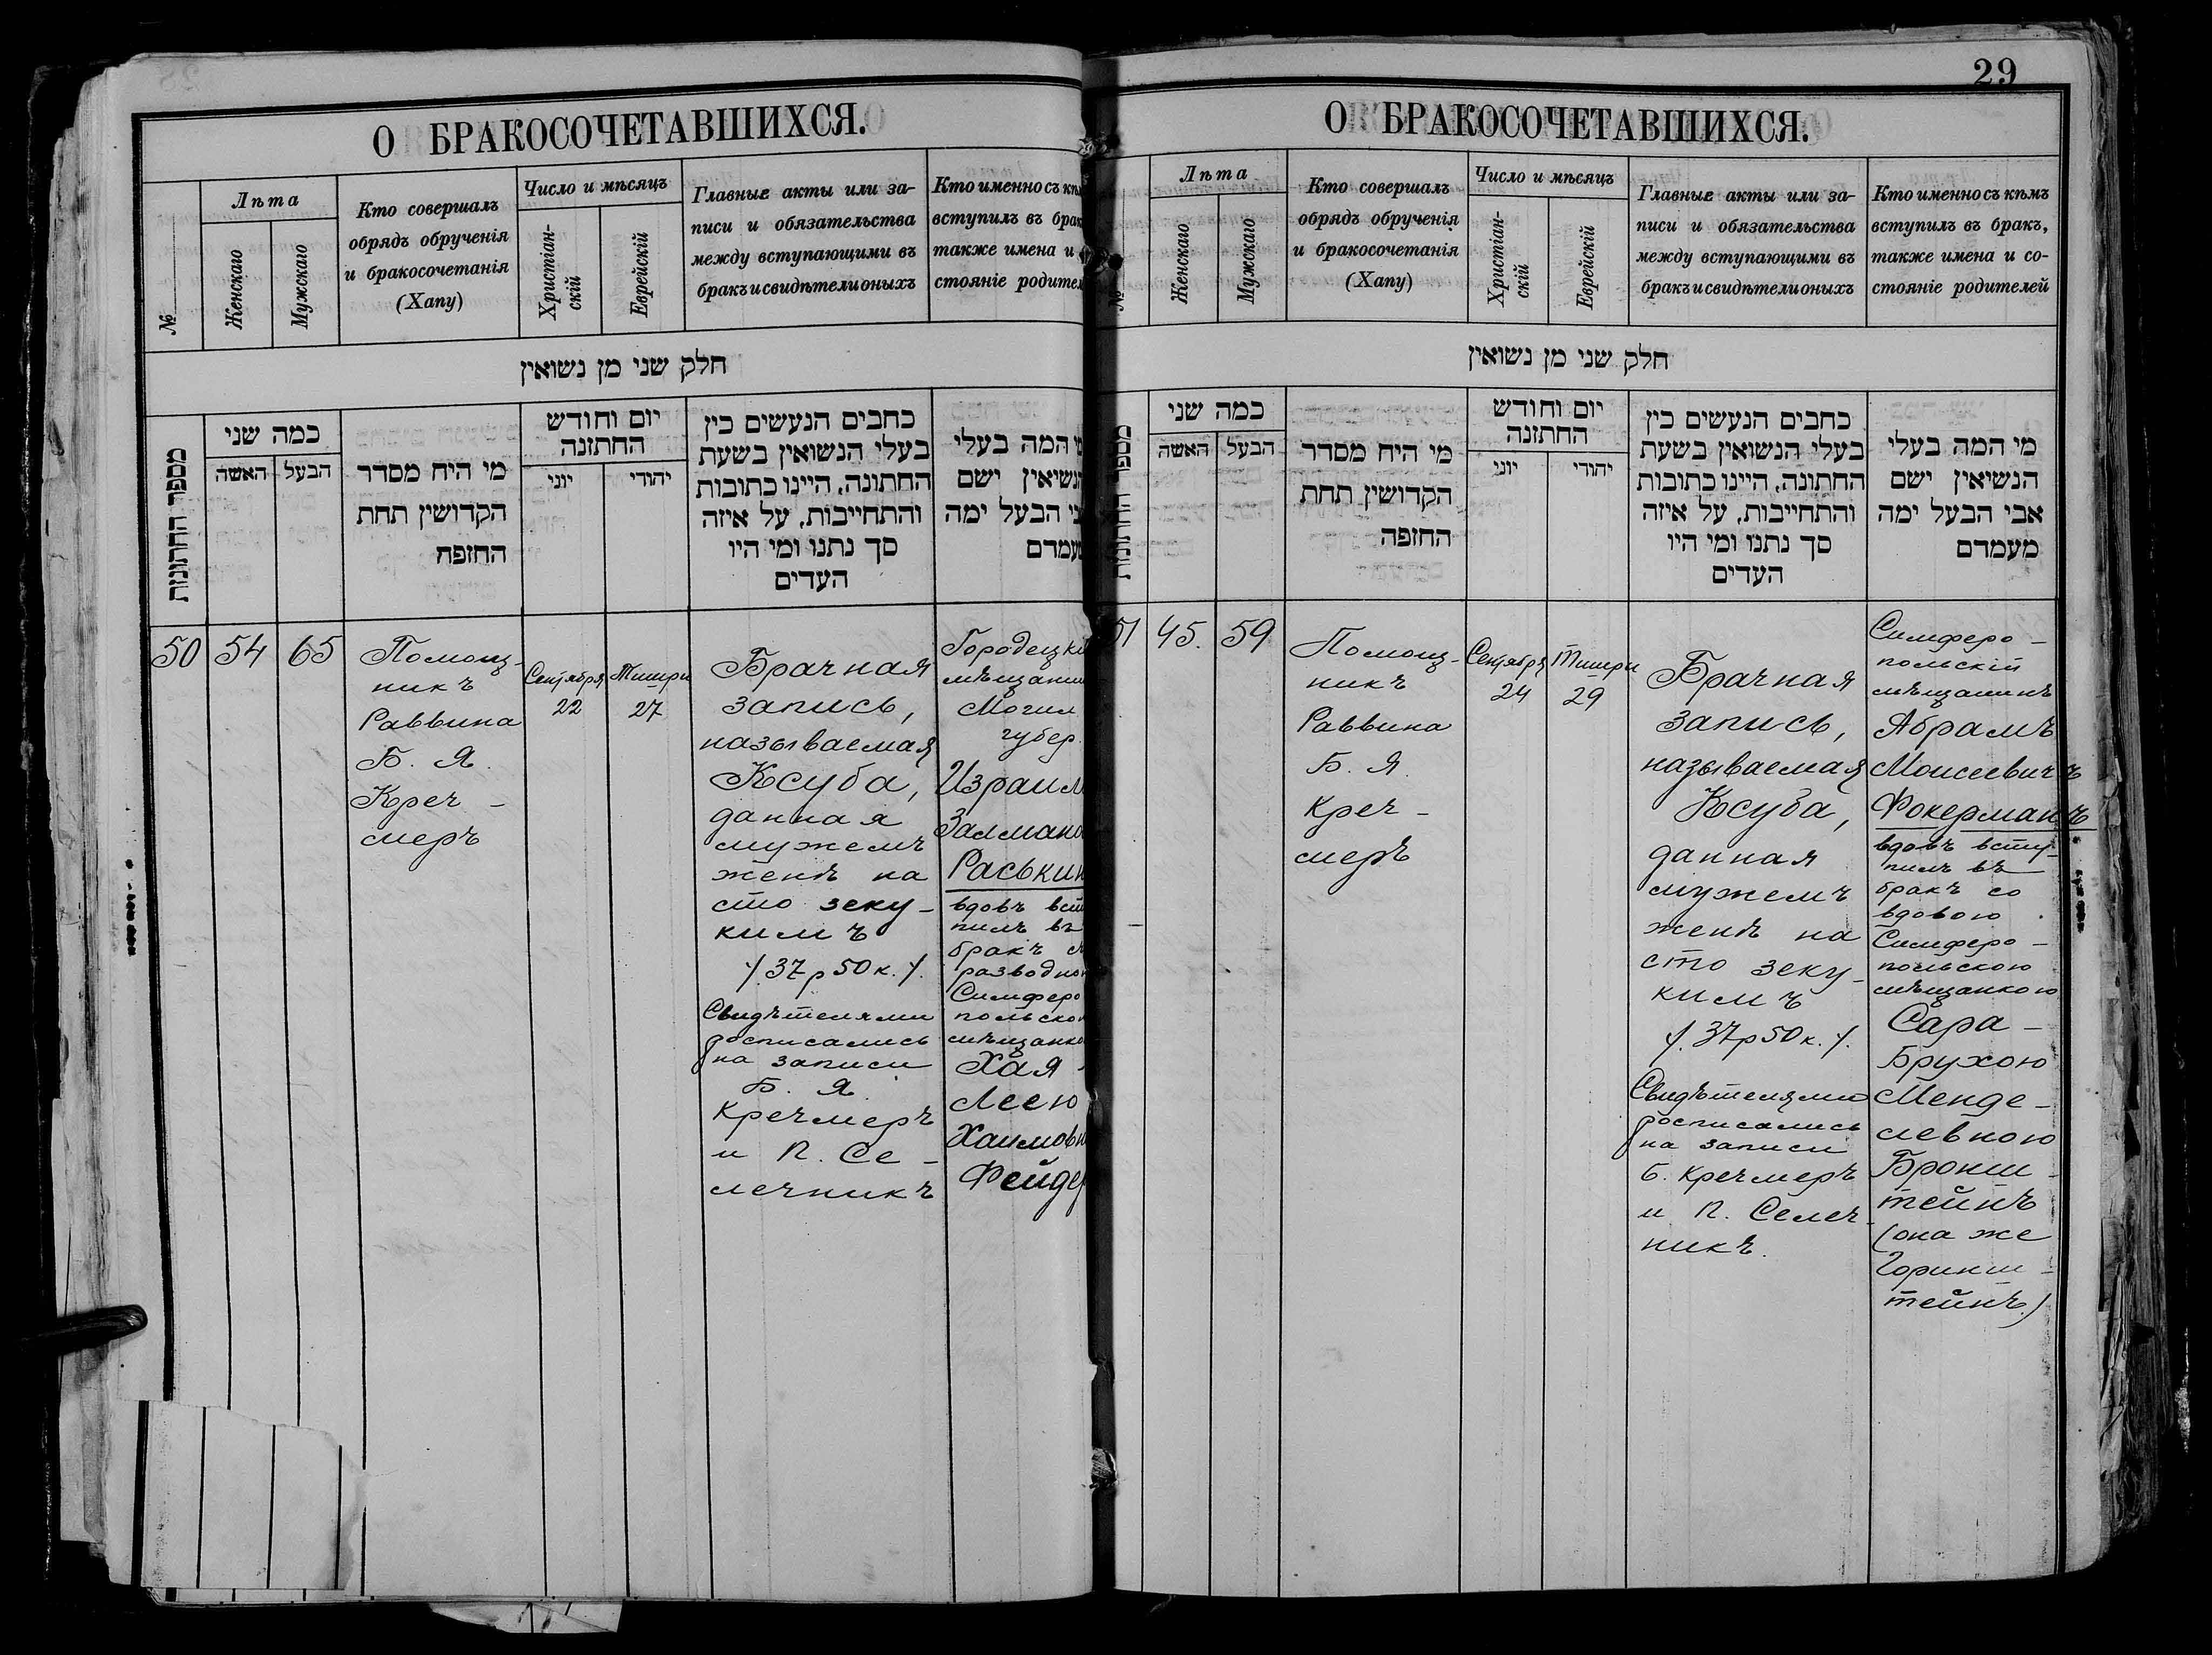 О БРАКОСОЧЕТАВШИХСЯ.
№
Лѣта
Женскаго
Мужскаго
Кто совершалъ
обрядъ обрученія
и бракосочетанія
(Хапу)
Число и мѣсяцъ
Христіан-
скій
Еврейскій
Главные акты или за-
писи и обязательства
между вступающими въ
бракъ и свидѣтели оныхъ
Кто именно съ
вступилъ въ
также имена и
стояніе
חלק שני מן נשואין
מספר החתונות
כמה שני
האשה
הבעל
מי היח מסדר
הקדושין תחת
החזפח
יום וחודש
החתזנה
יוני
יהודי
כחבים הנעשים כין
בעלי הנשואין בשעת
החתונה, היינו כתובות
והתחייבות, על איזה
סך נתנו ומי היו
העדים
המה בעלי
ישם
הבעל ימה
50
54
65
Помощ-
никъ
Раввина
Б. Я.
Креч-
меръ
Сентября
22
Тишри
27
Брачная
запись,
называемая
Ксуба,
данная
мужемъ
женѣ на
сто зеку-
кимъ
/. 37 р 50 к. /.
Свидѣтелями
росписались
на записи
Б. Я.
Кречмеръ
и П. Се-
лечникъ
Могил
губер.
вдовъ
бракъ
Симферо
Хая-
Леею
29
О БРАКОСОЧЕТАВШИХСЯ.
№
Лѣта
Женскаго
Мужскаго
Кто совершалъ
обрядъ обрученія
и бракосочетанія
(Хапу)
Число и мѣсяцъ
Христіан-
скій
Еврейскій
Главные акты или за-
писи и обязательства
между вступающими въ
бракъ и свидѣтели оныхъ
Кто именно съ кѣмъ
вступилъ въ бракъ,
также имена и со-
стояніе родителей
חלק שני מן נשואין
מספר החתונות
כמה שני
האשה
הבעל
מי היח מסדר
הקדושין תחת
החזפה
יום וחודש
החתזנה
יוני
יהודי
כחבים הנעשים כין
בעלי הנשואין בשעת
החתונה, היינו כתובות
והתחייבות, על איזה
סך נתנו ומי היו
העדים
מי המה בעלי
הנשיאין ישם
אבי הבעל ימה
מעמדם
51
45.
59
Помощ-
никъ
Раввина
Б. Я.
Креч-
меръ
Сентября
24
Тишри
29
Брачная
запись,
называемая
Ксуба,
данная
мужемъ
женѣ на
сто зеку-
кимъ
/. 37 р 50 к. /.
Свидѣтелями
росписались
на записи
Б. Кречмеръ
и П. Селеч-
никъ.
Симферо-
польскій
мѣщанинъ
Абрамъ
Моисеевичъ
Фокерманъ
вдовъ всту-
пилъ въ
бракъ со
вдовою
Симферо-
польскою
мѣщанкою
Сара-
Брухою
Менде-
левною
Бронш-
тейнъ
(она же
Горинш-
тейнъ)